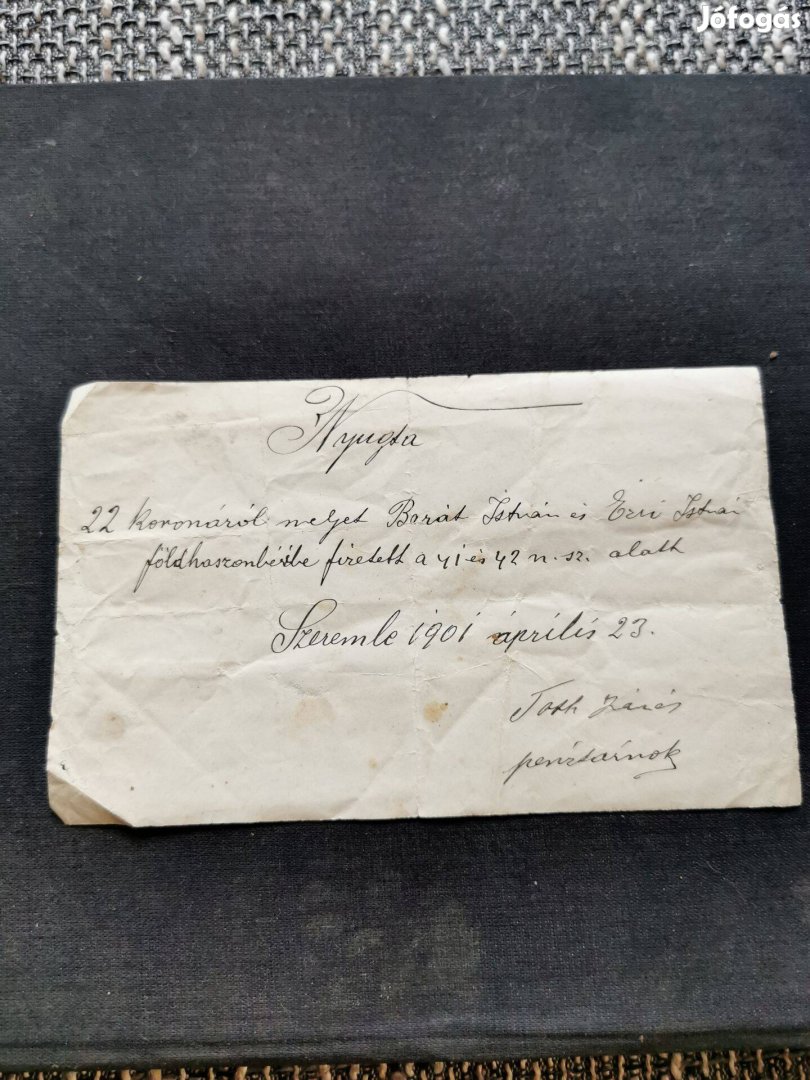 Jófogás
Nyugta
22 koronáról melyet Barát István és István
földhaszonbérbe fizetett a 41 és 42 n. sz. alatt
Szeremle 1901 április 23.
Toth
penztárnok